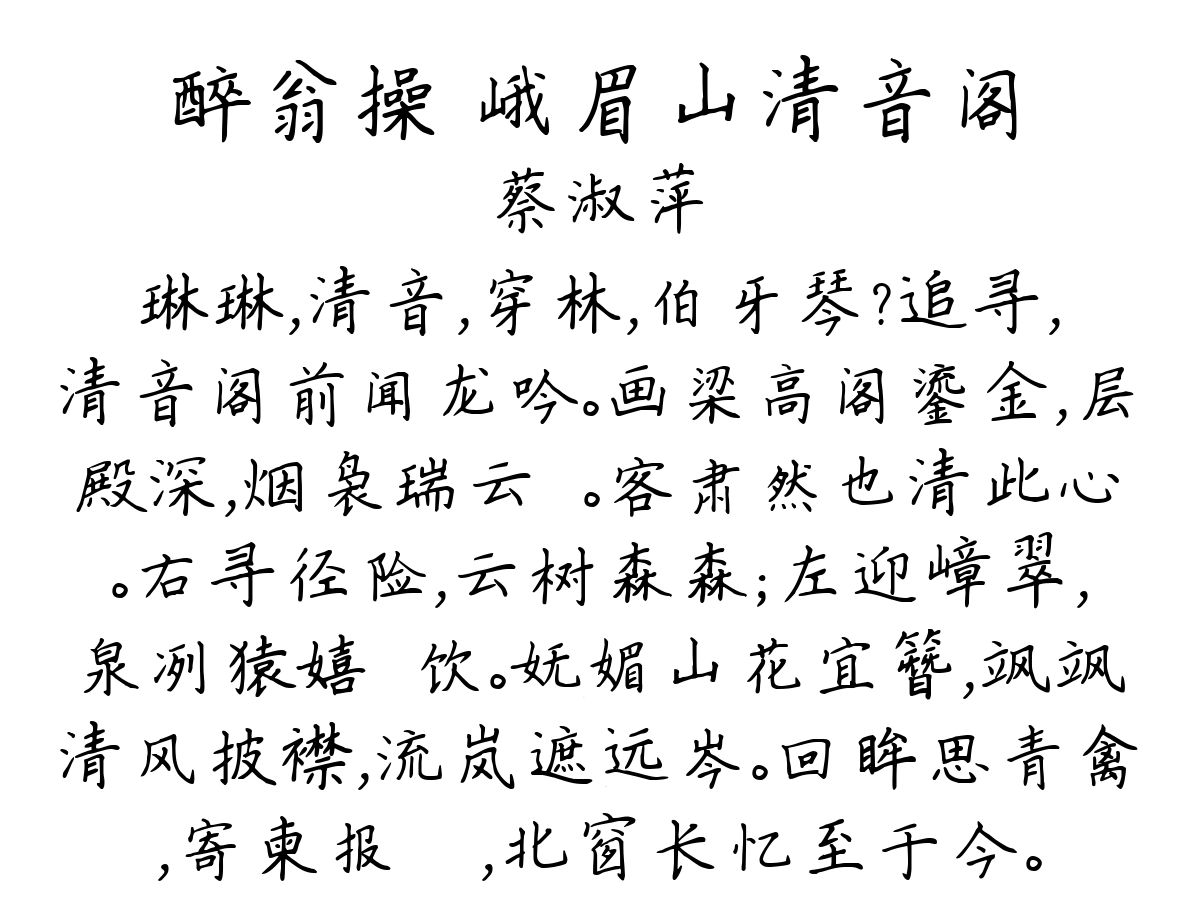 醉翁操 峨眉山清音阁
蔡淑萍
琳琳,清音,穿林,伯牙琴?追寻,
清音阁前闻龙吟。画梁高阁鎏金,层
殿深,烟袅瑞云 。客肃然也清此心
。右寻径险,云树森森;左迎嶂翠,
泉冽猿嬉 饮。妩媚山花宜簪,飒飒
清风披襟,流岚遮远岑。回眸思青禽
,寄柬报 ,北窗长忆至于今。